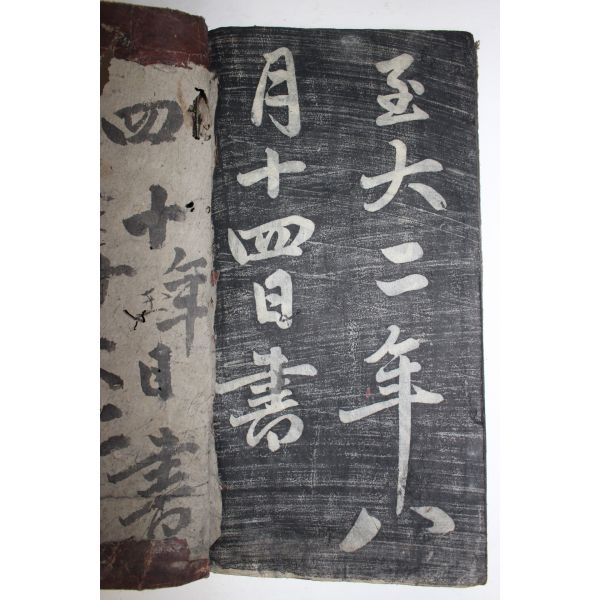 至大二年八
月十四日書
四十年日書